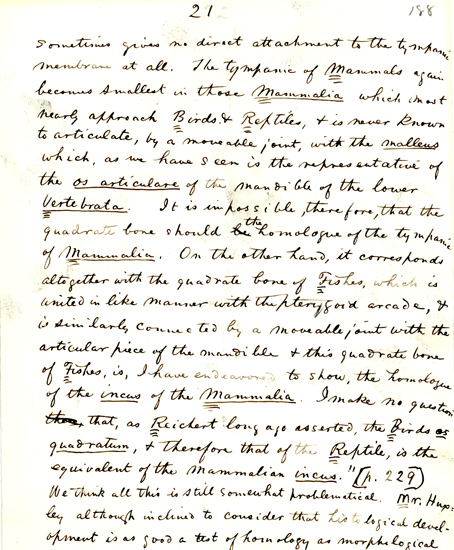 21 188
sometimes gives no direct attachment to the tympanic
membrane at all. The tympanic of Mammals again
becomes smallest in those Mammalia which most
nearly approach Birds & Reptiles, & is never known
to articulate, by a moveable joint, with the malleus
which, as we have seen is the representative of
the os articulare of the mandible of the lower
Vertebrata. It is impossible, therefore, that the
quadrate bone should be the homologue of the tympanic
of Mammalia. On the other hand, it corresponds
altogether with the quadrate bone of Fishes, which is
united in like manner with the pterygoid arcade, &
is similarly connected by a moveable joint with the
articular piece of the mandible & this quadrate bone
of Fishes, is, I have endeavored to show, the homologue
of the incus of the Mammalia. I make no question
that, as Reichert long ago asserted, the Birds os
quadratum, & therefore that of the Reptile, is the
equivalent of the Mammalian incus." (p. 229)
We think all this is still somewhat problematical. Mr. Hux=
ley although inclined to consider that histological devel-
opment is as good a test of homology as morphological